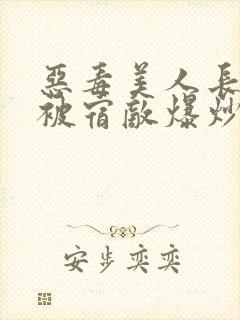 惡毒美人長
被宿敵爆炒
安步奕奕